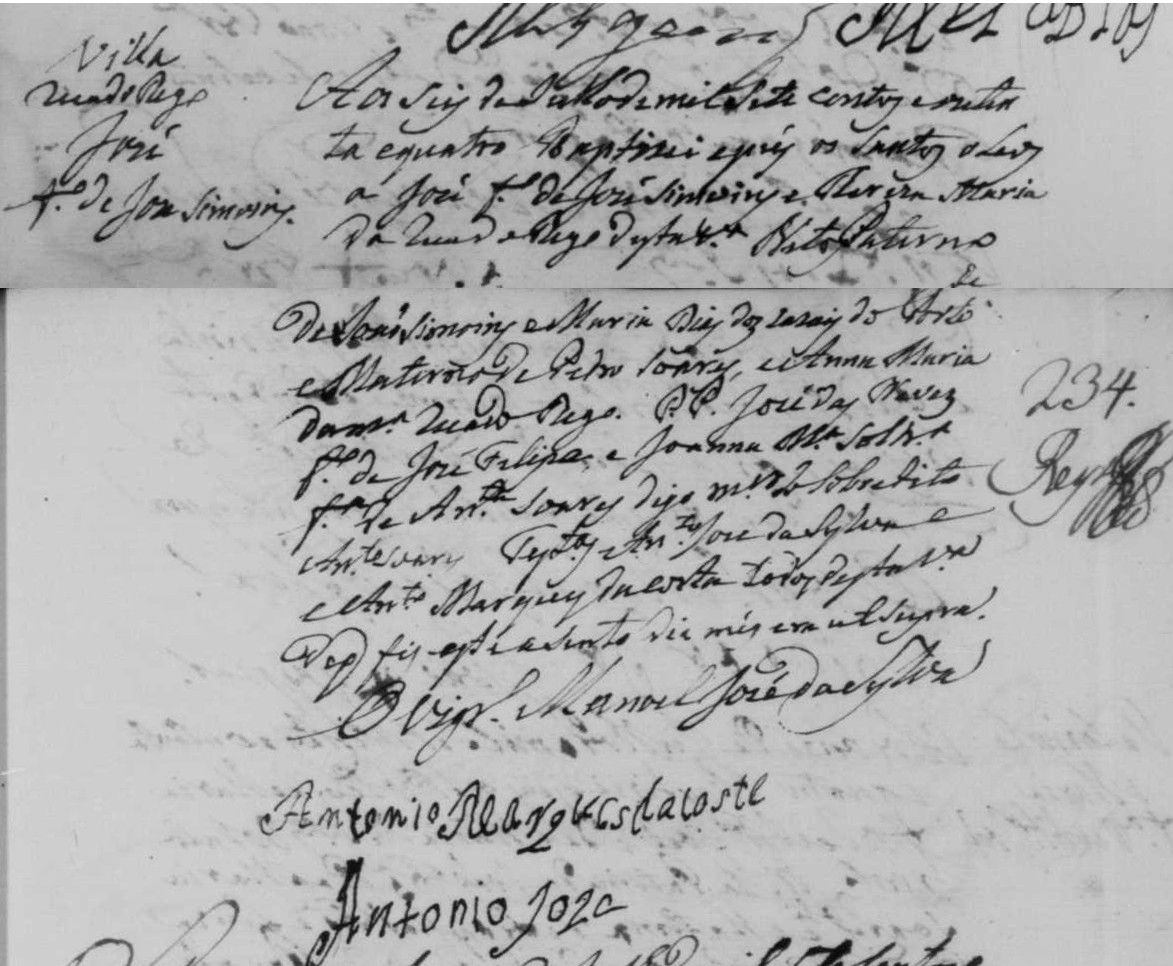 Villa
Rua do Rego
José
f.º de José Simoins.
Aos seis de Julho de mil Sete centos e outen
ta e quatro Baptizei e pús os Santos oleos
a José f.º de José Simoins e Thereza Maria
da Rua do Rego desta V.ª Neto Paterno
de
de José Simoins e Maria Dias dos Cazais do
e Materno de Pedro Soares, e Anna Maria
da m.ª Rua do Rego. P.P. José das Neves
f.º de José Felipe e Joanna M.ª Solt.ª
f.ª de Ant.º Soares digo o Sobredito
Ant.º Soares Test.as Ant.º José da Sylva e
e Ant.º Marques da Costa todos desta V.ª
De q fis este asento dia més era ut Supra.
O Vigr.º Manoel José da Sylva
Antonio Marques da Coste
Antonio Joze
234.